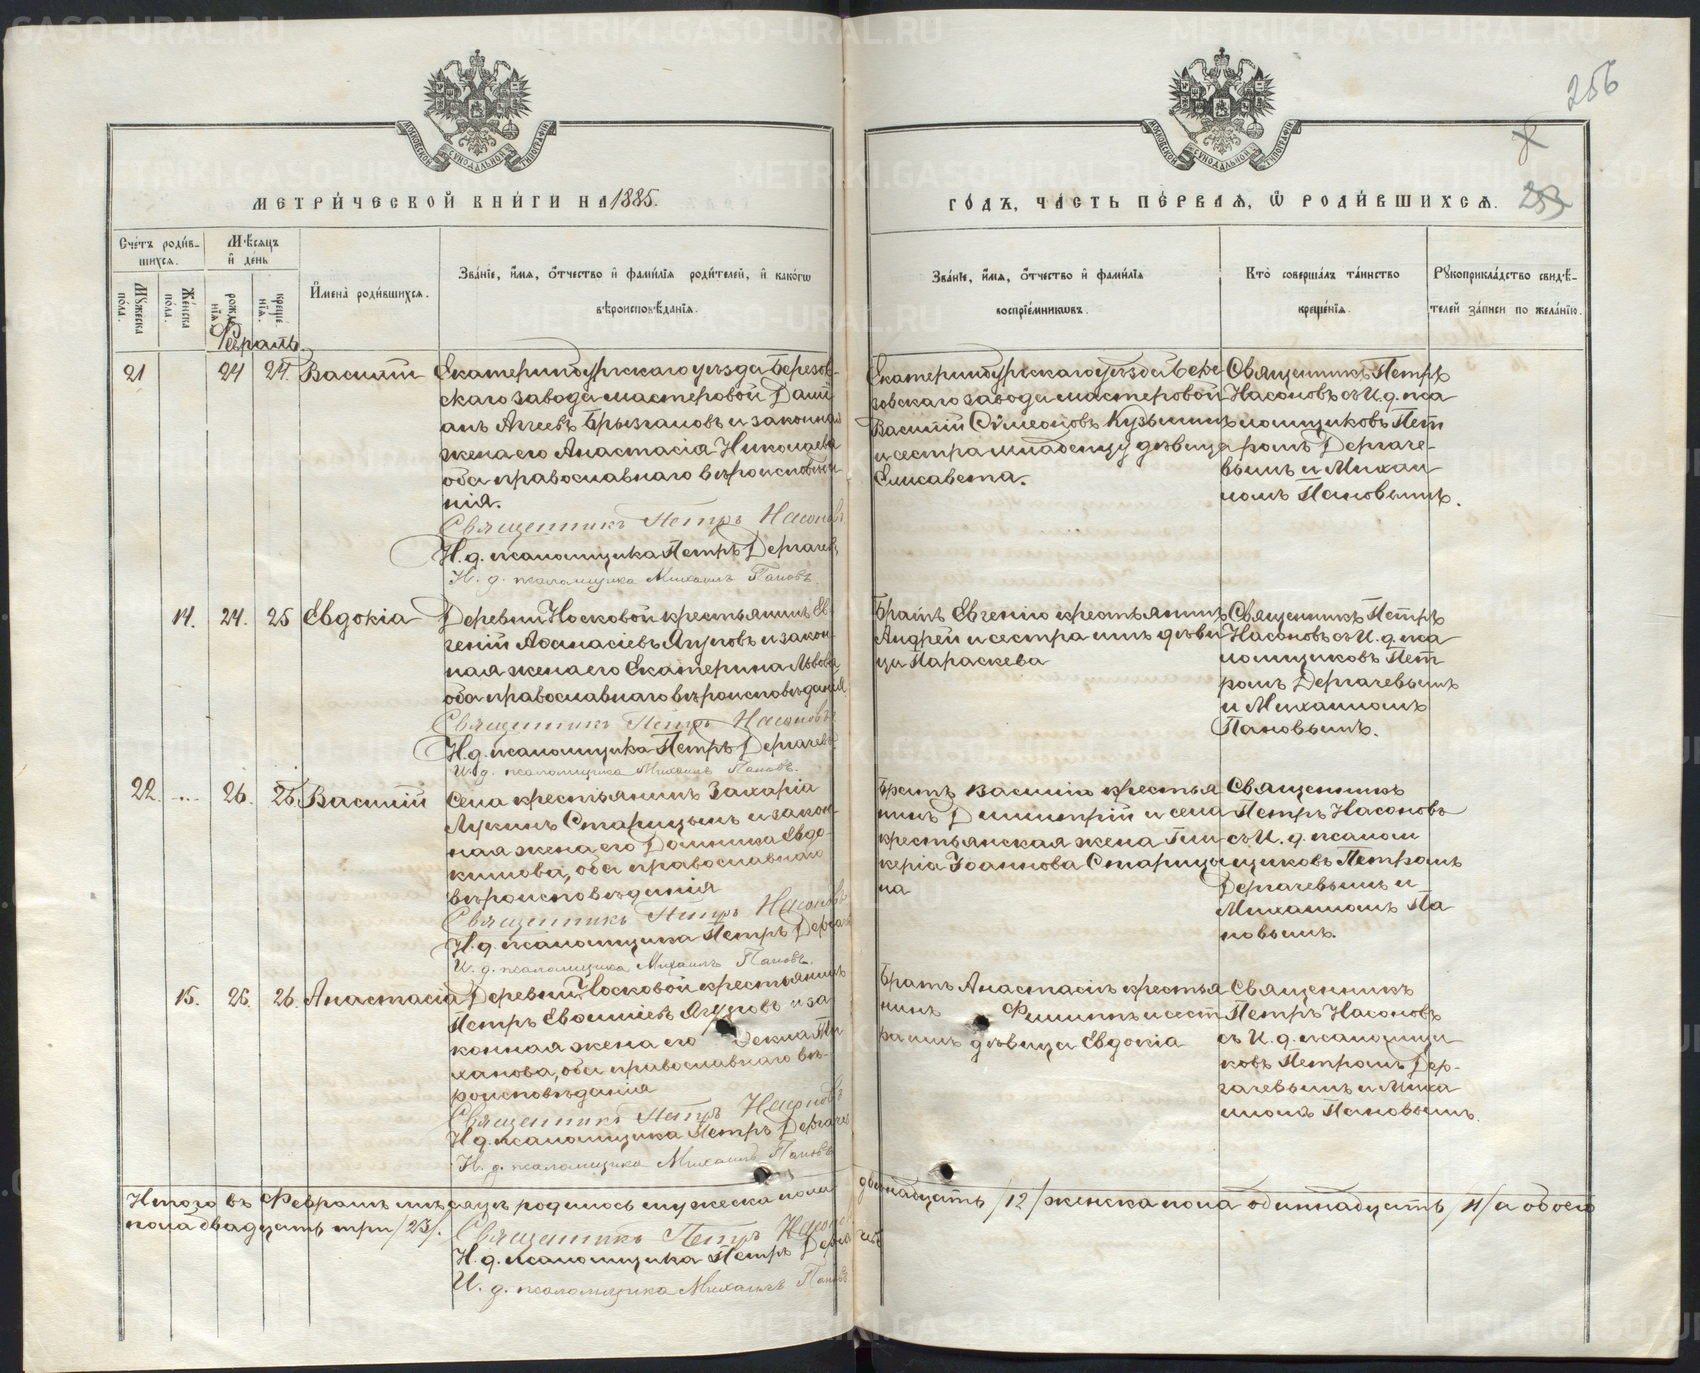 256
МОСКОВСКОЙ СѴНОДАЛЬНОЙ ТИПОГРАФІИ
МОСКОВСКОЙ СѴНОДАЛЬНОЙ ТИПОГРАФІИ
МЕТРИ́ЧЕСКОЙ КНИ́ГИ НА 1885.
ГО́ДЪ, ЧА́СТЬ ПЕ́РВАЯ, Ѽ РОДИ́ВШИХСЯ.
Сче́тъ роди́в-
шихся.
Мѣ́сяцъ
и҆ де́нь
Мꙋ́жеска по́ла.
Же́нска по́ла.
рожде́нїѧ.
креще́нїѧ.
И҆мена̀ роди́вшихся.
Зва́нїе, и҆́мѧ, ѻ҆́тчество и҆ фами́лїѧ роди́телей, и҆ како́гѡ
вѣроисповѣ́данїѧ.
Зва́нїе, и҆́мѧ, ѻ҆́тчество и҆ фами́лїѧ
воспрїе́мникѡвъ.
Кто̀ соверша́лъ та́инство
креще́нїѧ.
Рꙋкоприкла́дство свидѣ́-
телей за́писи по жела́нїю.
Февраль.
21 24 24. Василій
Екатеринбургскаго уѣзда Березов-
скаго завода мастеровой Дани
илъ Агѣевъ Брызгаловъ и законная
жена его Анастасія Николаева
оба православнаго вѣроисповѣда-
нія.
Священникъ Петръ Насоновъ
И. д. псаломщика Петръ Дергачев
И. д. псаломщика Михаилъ Пановъ.
Екатеринбургскаго уѣзда Бере
зовскаго завода мастеровой
Василій Сѵмеоновъ Кузьминъ
и сестра младенцу дѣвица
Елисавета.
Священникъ Петръ
Насоновъ съ И. д. пса
ломщиковъ Пет
ромъ Дергаче-
вымъ и Михаи
ломъ Пановымъ.
14. 24. 25 Евдокіа
Деревни Носковой крестьянинъ Ев-
геній Аѳанасіевъ Ягуповъ и закон-
ная жена его Екатерина Львова
оба православнаго вѣроисповѣданія
Священникъ Петръ Насоновъ
И. д. псаломщика Петръ Дергачев
И. д. псаломщика Михаилъ Пановъ.
Братъ Евгенію крестьянинъ
Андрей и сестра ихъ дѣви
ца Параскева
Священникъ Петръ
Насоновъ съ И. д. пса
ломщиковъ Пет
ромъ Дергачевымъ
и Михаиломъ
Пановымъ.
22. ... 26. 26. Василій
Села крестьянинъ Захаріа
Лукинъ Старицынъ и закон-
ная жена его Домника Евдо-
кимова, оба православнаго
вѣроисповѣданія
Священникъ Петръ Насоновъ
И. д. псаломщика Петръ Дергач
И. д. псаломщика Михаилъ Пановъ.
Братъ Василію крестья
нинъ Димитрій и села
крестьянская жена Гли
керіа Іоаннова Старицы
на
Священникъ
Петръ Насоновъ
съ И. д. псалом
щиковъ Петромъ
Дергачевымъ и
Михаиломъ Па
новымъ.
15. 26. 26. Анастасіа
Деревни Носковой крестьянинъ
Петръ Ягуповъ и за
конная жена его Ти
ханова, оба православнаго вѣ-
роисповѣданія
Священникъ Петръ Насоновъ
И. д. псаломщика Петръ Дергачев
И. д. псаломщика Михаилъ Пановъ
Братъ Анастасіи крестья
нинъ Филиппъ и сест
ра ихъ дѣвица Евдокіа
Священникъ
Петръ Насоновъ
съ И. д. псаломщи
ковъ Петромъ Дер-
гачевымъ и Миха
иломъ Пановымъ.
Итого въ Февралѣ мѣсяцѣ родилось мужеска пола двѣнадцать /12/ женска пола одиннадцать /11/ и обоего
пола двадцать три /23/.
Священникъ Петръ Насоновъ
И. д. псаломщика Петръ Дергачевъ
И. д. псаломщика Михаилъ Пановъ
METRIKI.GASO-URAL.RU